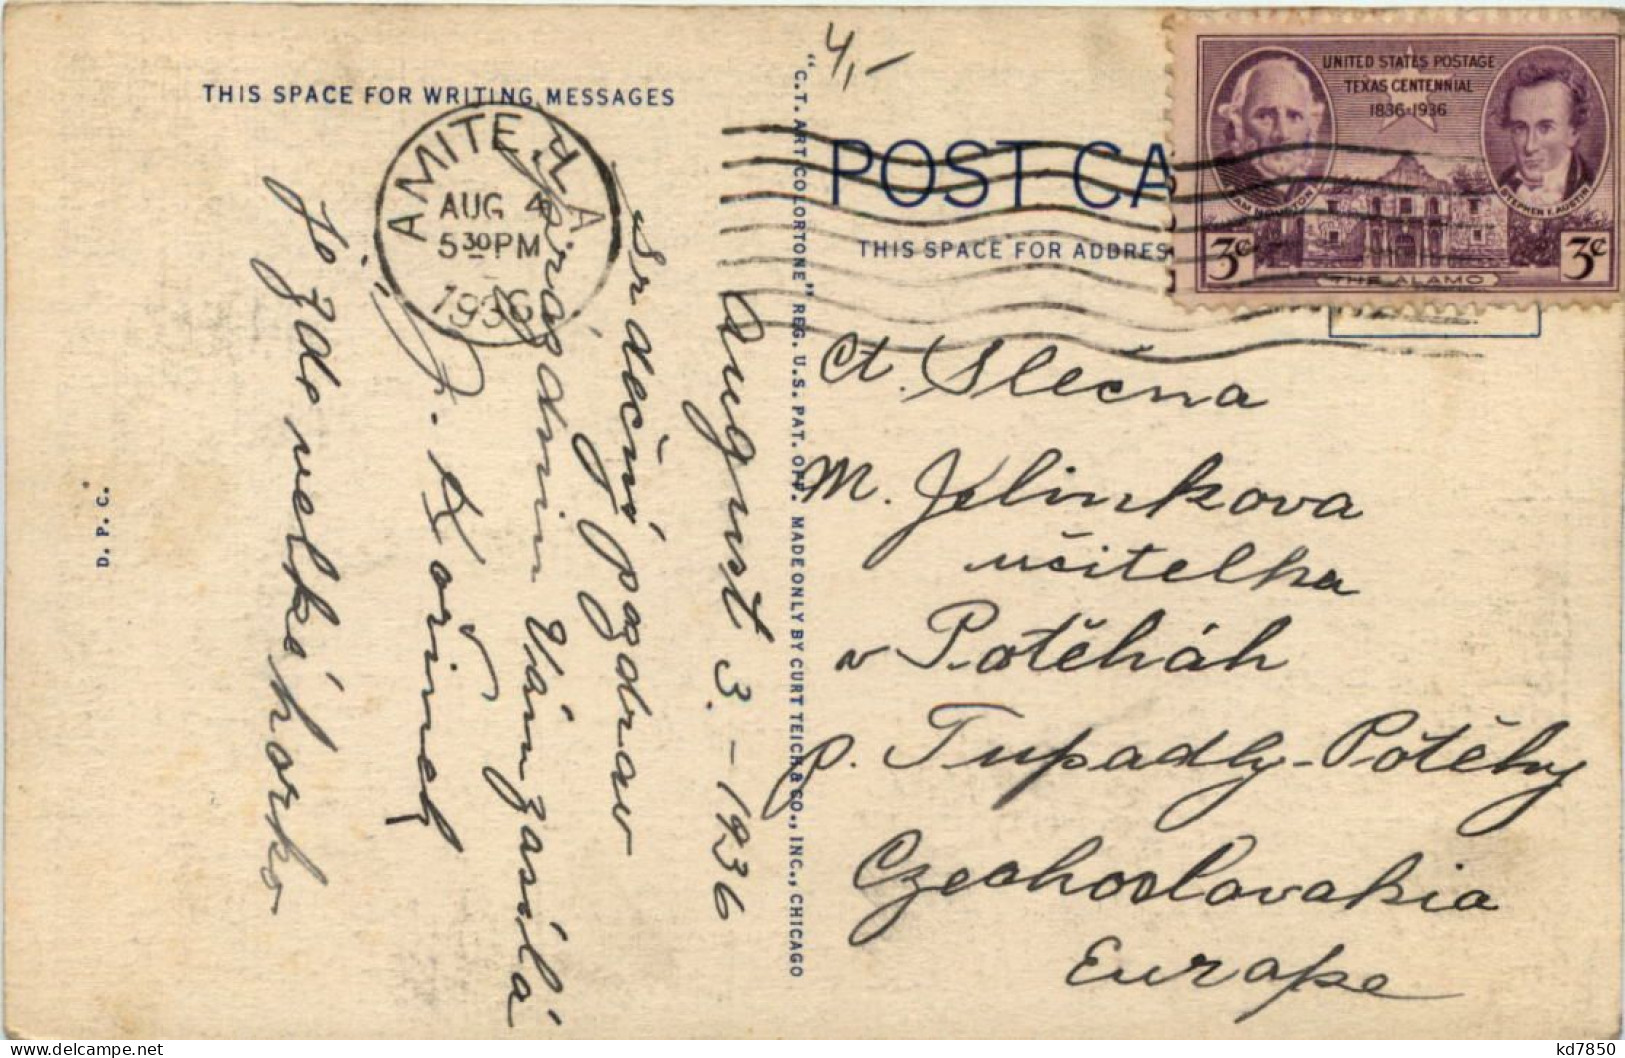 THIS SPACE FOR WRITING MESSAGES
AMITE, LA
AUG 4
5 30 PM
1936
August 3. - 1936
Srdečný pozdrav
z prázdnin Vám zasílá
J. Kořínek
Je zde velké horko
D. P. C.
"C.T. ART COLORTONE" REG. U.S. PAT. OFF. MADE ONLY BY CURT TEICH & CO., INC., CHICAGO
4,-
POST CA
THIS SPACE FOR ADDRES
UNITED STATES POSTAGE
TEXAS CENTENNIAL
1836·1936
SAM HOUSTON
STEPHEN F. AUSTIN
3¢
THE ALAMO
3¢
Ct. Slečna
M. Jelinkova
učitelka
v Potěhách
p. Tupadly-Potěhy
Czechoslovakia
Europe
kd7850